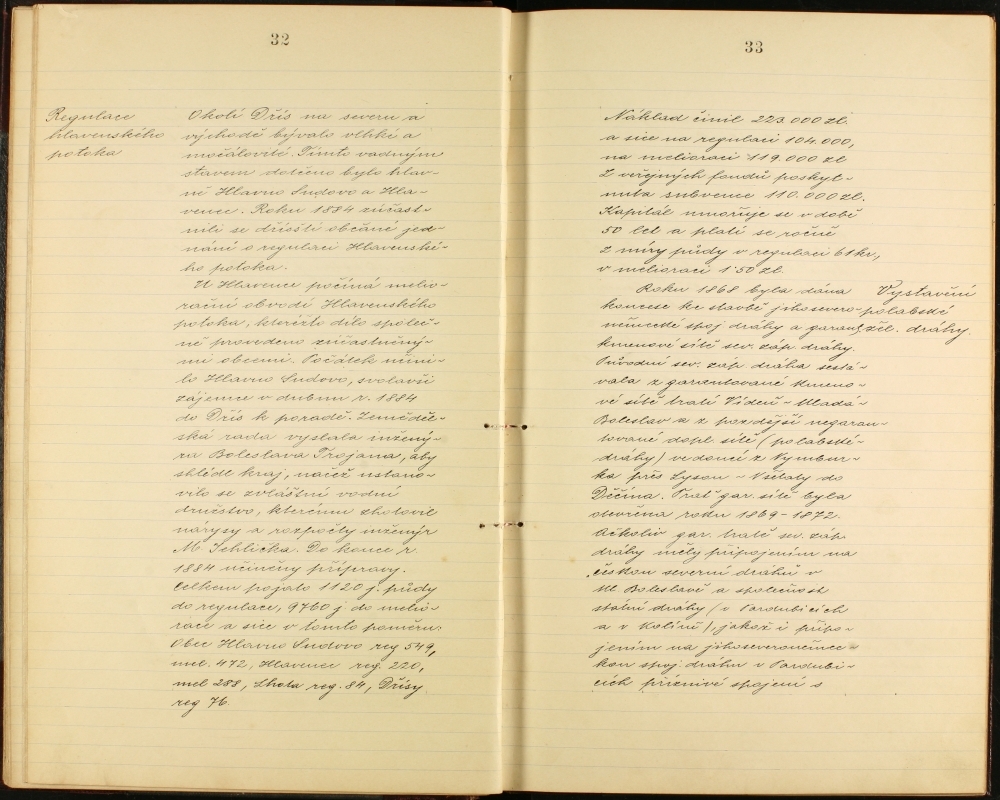 32
Regulace
hlavenského
potoka
Okolí Dřís na severu a
východě bývalo vlhké a
močálovité. Tímto vadným
stavem dotčeno bylo hlav-
ně Hlavno Sudovo a Hla-
venec. Roku 1884 zúčast-
nili se dřísští občané jed-
nání o regulaci Hlavenské-
ho potoka.
U Hlavence počíná melio-
rační obvodí Hlavenského
potoka, kterézto dílo společ-
ně provedeno zúčastněný-
mi obcemi. Počátek učini-
lo Hlavno Sudovo, svolavši
zájemce v dubnu r. 1884
do Dřís k poradě. Zeměděl-
ská rada vyslala inžený-
ra Boleslava Trojana, aby
shlédl kraj, načež ustano-
vilo se zvláštní vodní
družstvo, kterému zhotovil
nárysy a rozpočty inženýr
M Jehlička. Do konce r.
1884 učiněny přípravy.
Celkem pojato 1120 j. půdy
do regulace, 9760 j do melio-
race a sice v tomto poměru:
Obec Hlavno Sudovo reg 549,
mel. 472, Hlavenec reg. 220,
mel 288, Lhota reg. 84, Dřísy
reg 76.
33
Náklad činil 223.000 zl.
a sice na regulaci 104.000,
na melioraci 119.000 zl
Z veřejných fondů poskyt-
nuta subvence 110.000 zl.
Kapitál umořuje se v době
50 let a platí se ročně
z míry půdy v regulaci 61 kr.,
v melioraci 1˙50 zl.
Roku 1868 byla dána
koncese ke stavbě jihosevero-
německé spoj. dráhy a garant.
kmenové sítě sev. záp. dráhy.
Vystavění
polabské
žel. dráhy.
Původní sev. záp. dráha sestá-
vala z garantované kmeno-
vé sítě tratí Vídeň - Mladá-
Boleslav a z pozdější negaran-
tované dopl. sítě (polabské-
dráhy) vedoucí z Nymbur-
ka přes Lysou - Všetaty do
Děčína. Trať gar. sítě byla
otevřena roku 1869 - 1872.
Ačkoliv gar. tratě sev. záp.
dráhy měly připojením na
českou severní dráhu v
Ml. Boleslavě a společnost
státní dráhy (v Pardubicích
a v Kolíně), jakož i připo-
jením na jihoseveroněmec-
kou spoj. dráhu v Pardubi-
cích příznivé spojení s